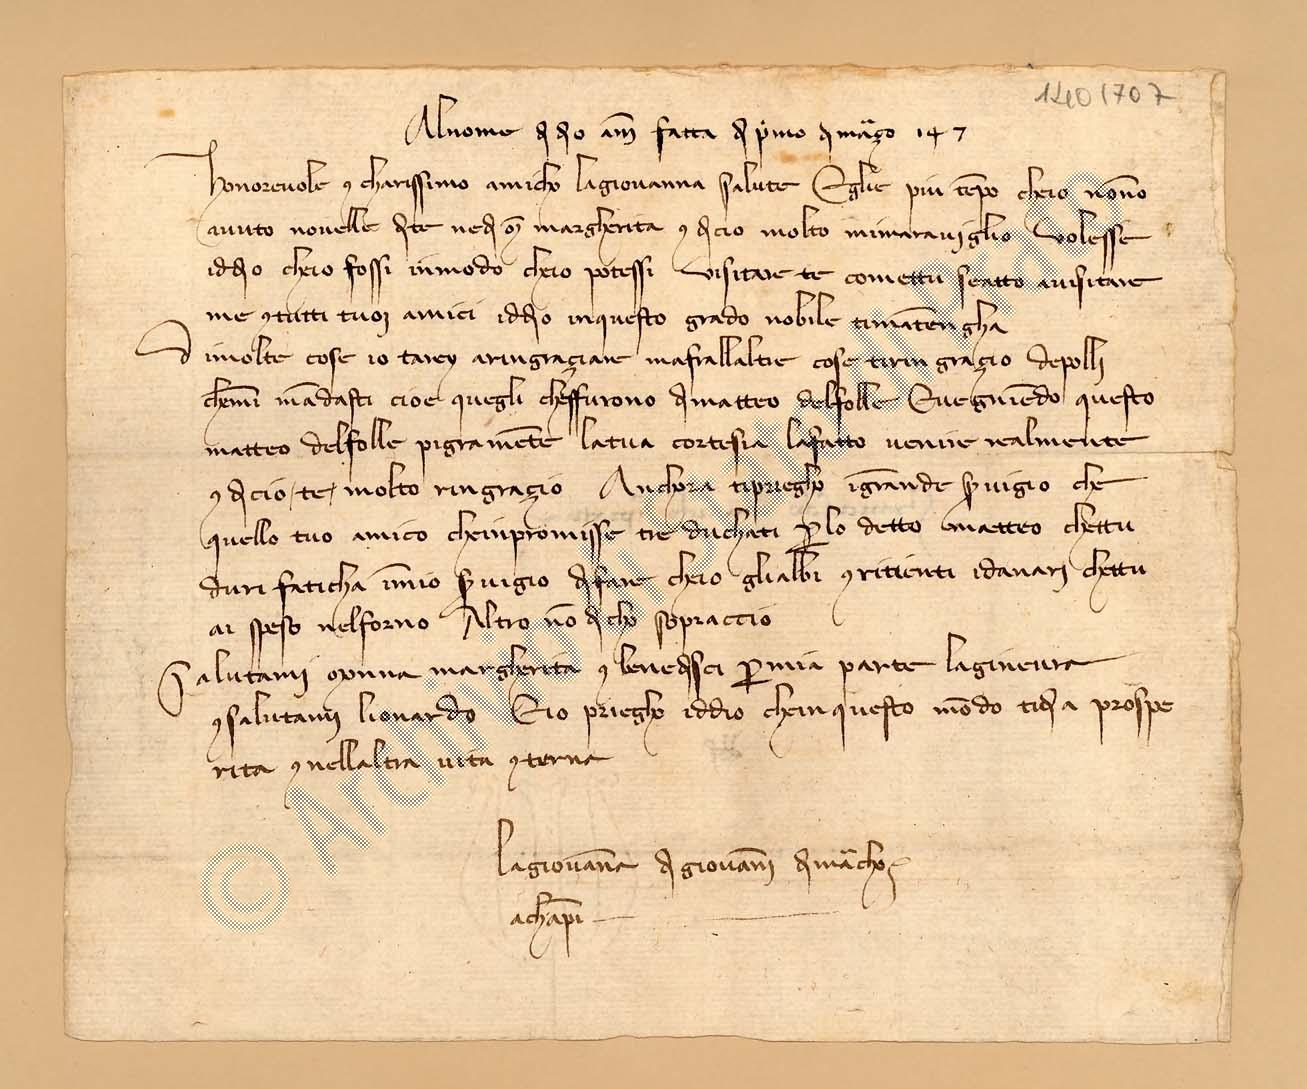 1401707
Al nome d dio am fatta d p'mo d março 147
Honorevole 9 charissimo amicho la giovanna salute Egl'e piu tēpo cheio nōno
avuto novelle d te ne d mō margherita 9 d cio molto mi maraviglio volesse
iddio cheio fossi in modo cheio potessi visitare te come ttu se atto avisitare
me 9 tutti tuoi amici iddio in questo grado nobile timātengha
Di molte cose io tarey aringraçiare ma frallaltre cose ti ringraçio de polli
chemī mādasti cioe quegli cheffurono d matteo del folle E vegniēdo questo
matteo del folle pigramēte la tua cortesia la fatto venire realmente
9 d cio te molto ringraçio Anchora ti priegho i grande s'vigio che
quello tuo amico che inpromisse tre duchati p lo detto matteo chettu
duri faticha ī mio s'vigio d fare cheio gli abbi 9 ritienti i danari chettu
ai speso nel forno Altro nō dicho sopraccio
Salutami monna margherita 9 benedisci p mia parte la ginevra
9 salutami lionardo E io priegho iddio che in questo mōdo ti dia prospe
rita 9 nellaltra vita 9terna
la giovāna d giovāni d mācho
achāpi
© Archivio di Stato di Prato